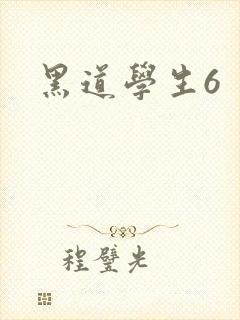 黑道學生6
程璧光